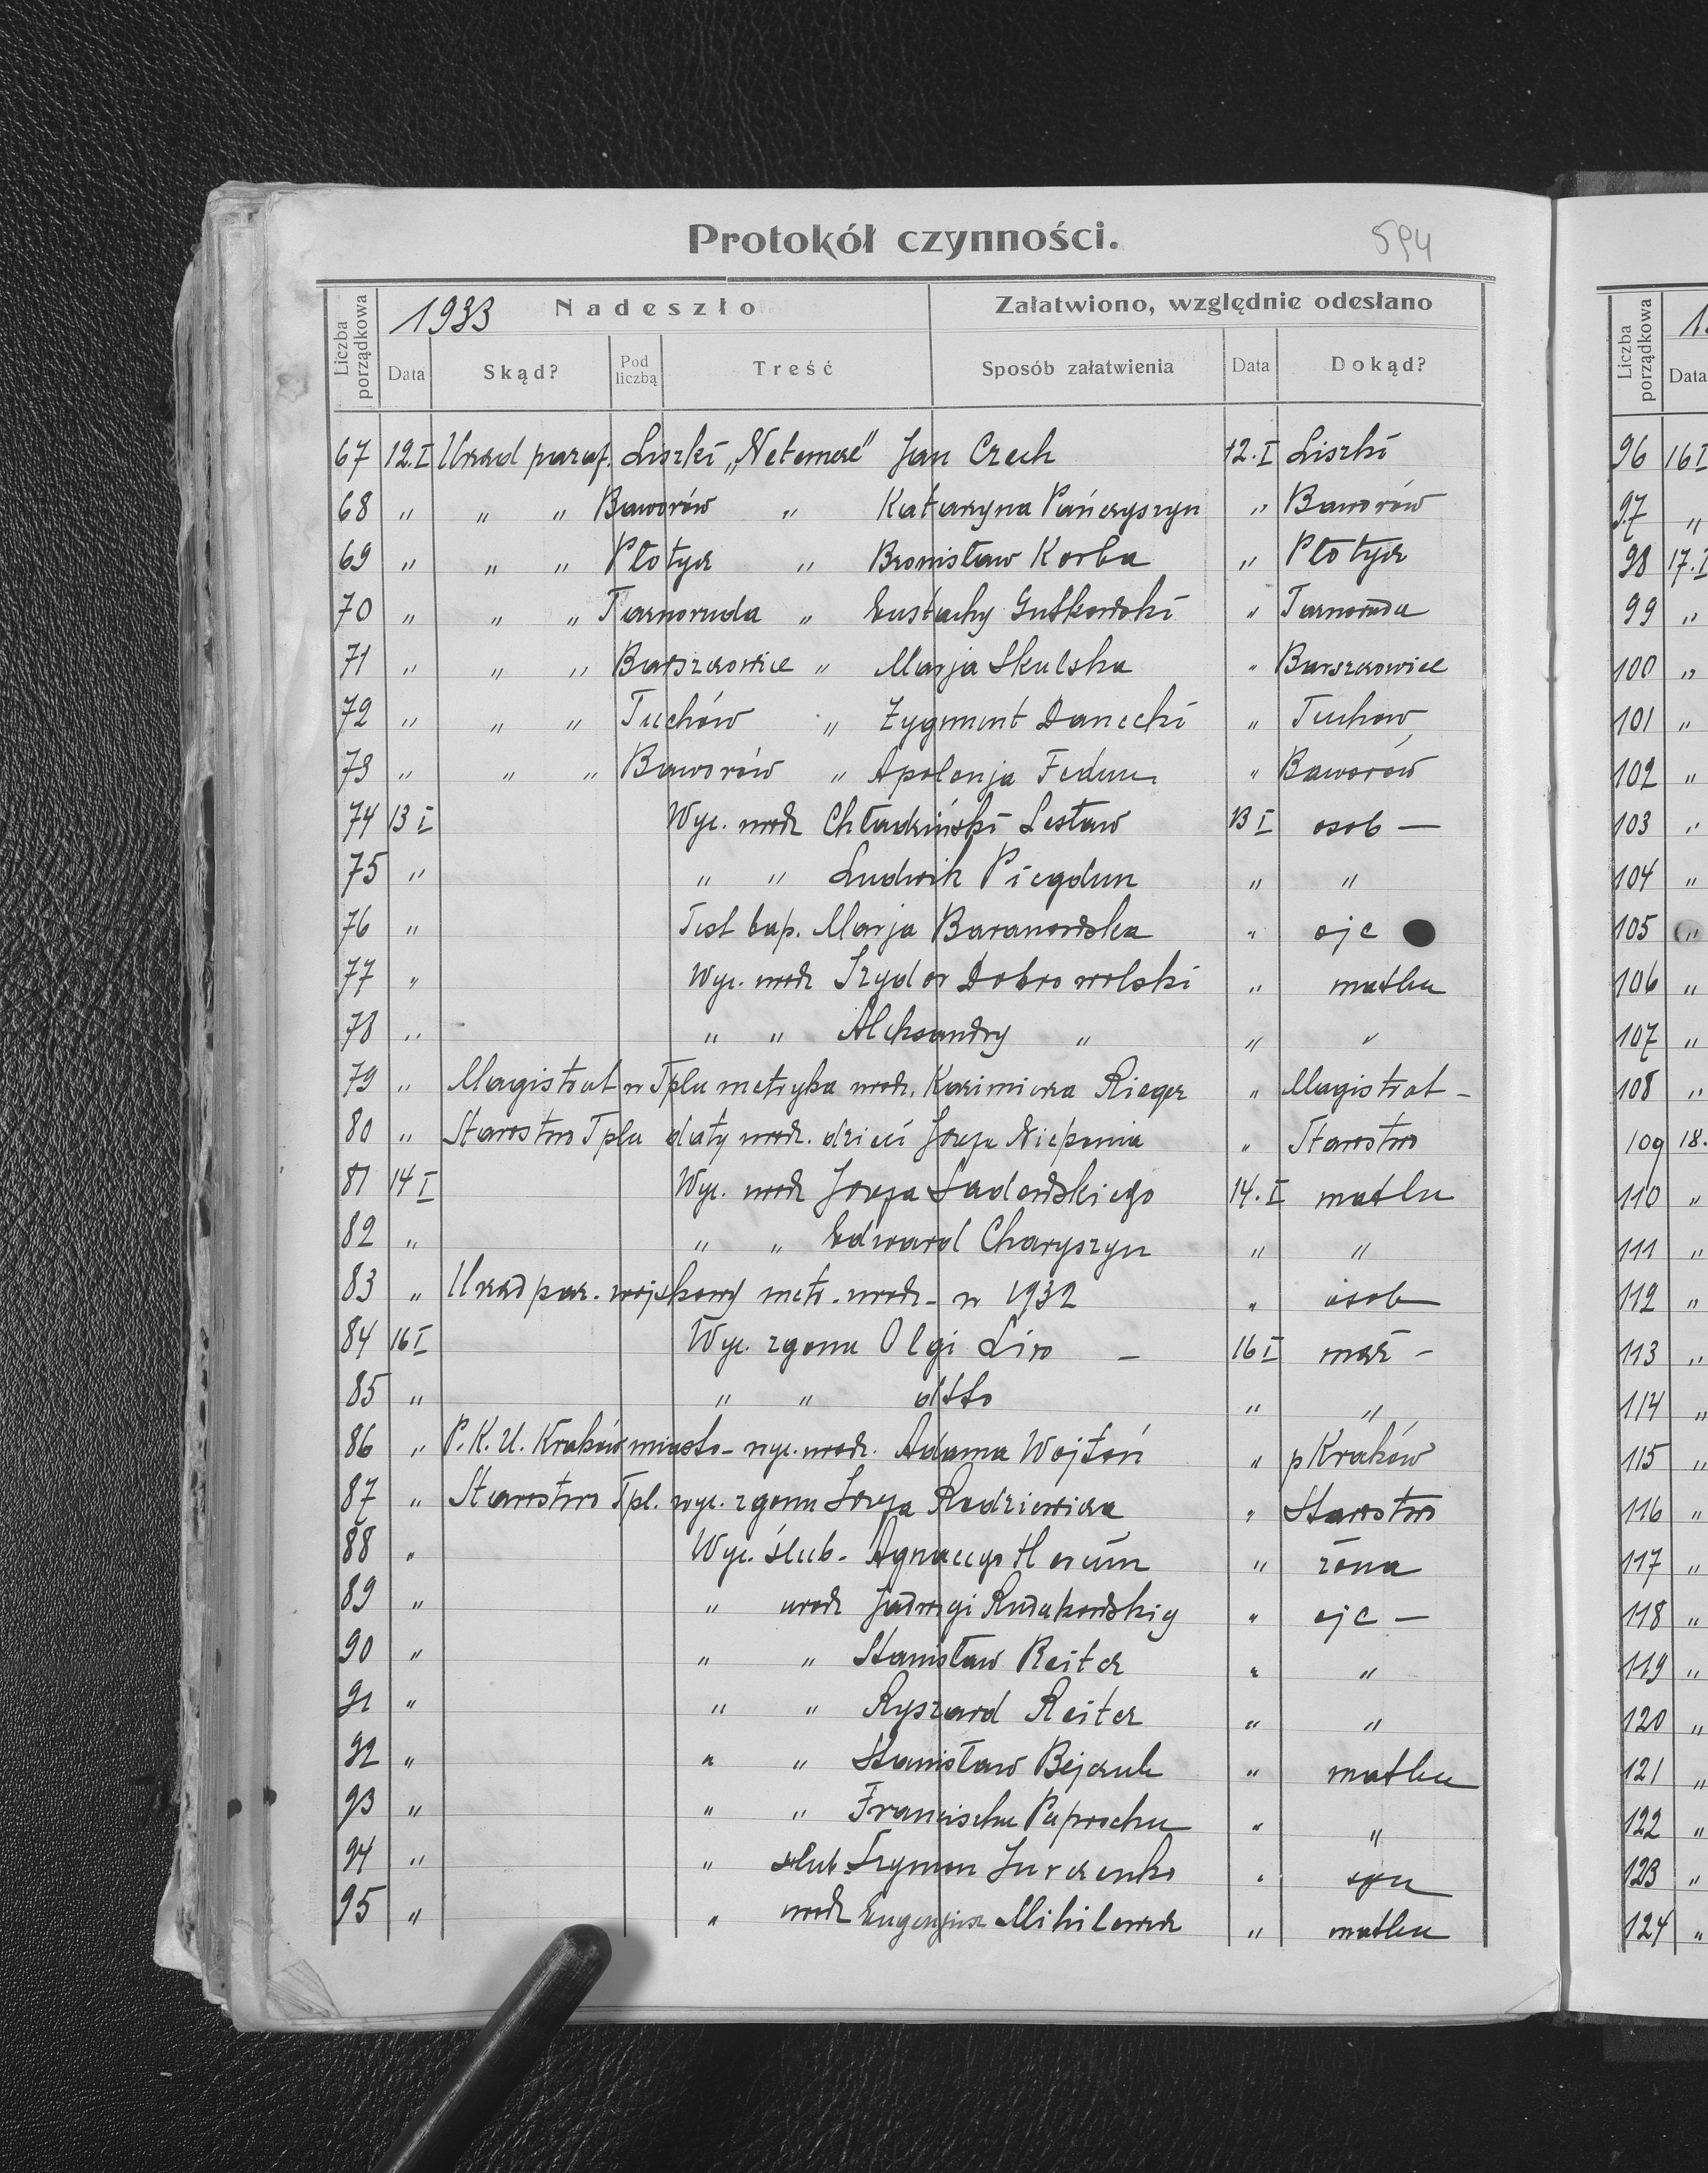 Protokół czynności.
594
Liczba porządkowa
1933 Nadeszło
Załatwiono, względnie odesłano
Data Skąd? Pod liczbą Treść Sposób załatwienia Data Dokąd?
67 12.I Urząd paraf. Liszki „Netemere" Jan Czech 12.I Liszki
68 " " " Baworów " Katarzyna Pańczyszyn " Baworów
69 " " " Płotycz " Bronisław Korba " Płotycz
70 " " " Tarnoruda " Eustachy Gutkowski " Tarnoruda
71 " " " Barszczowice " Marja Skulska " Barszczowice
72 " " " Tuchów " Zygmunt Danecki " Tuchow
73 " " " Baworów " Apolonja " Baworów
74 13 I Wyc. urodz Chładziński Lesław 13 I osob —
75 " " " Ludwik Piegdun " "
76 " Test bap. Marja Baranowska " ojc
77 " Wyc. urodz Izydor Dobrowolski " matka
78 " " " Aleksandry " " "
79 " Magistrat w Tplu metryka urodz. Kazimierza Rieger " Magistrat -
80 " Starostwo Tplu daty urodz. dzieci Józefa " Starostwo
81 14 I Wyc. urodz Józefa Sadowskiego 14.I matka
82 " " " Edward Charyszyn " "
83 " Urząd par. wojskowy metr. urodz - w 1932 " osob
84 16 I Wyc. zgonu Olgi — 16 I mąż -
85 " " " dtto " "
86 " P.K.U. Kraków miasto - wyc. urodz. Adama Wojtoń " p Kraków
87 " Starostwo Tpl. wyc. zgonu Józefa Radziewicza " Starostwo
88 " Wyc. ślub. " żona
89 " " urodz Jadwigi Rudakowskiej " ojc —
90 " " " Stanisław Reiter " "
91 " " " Ryszard Reiter " "
92 " " " Stanisław Bejczuk " matka
93 " " " Franciszka Paprocka " "
94 " " ślub Szymon Jurczenko "
95 " " urodz Eugenjusz " matka
Liczba porządkowa
Data
96 16 I
97 "
98 17.I
99 "
100 "
101 "
102 "
103 "
104 "
105 "
106 "
107 "
108 "
109 18.
110 "
111 "
112 "
113 "
114 "
115 "
116 "
117 "
118 "
119 "
120 "
121 "
122 "
123 "
124 "